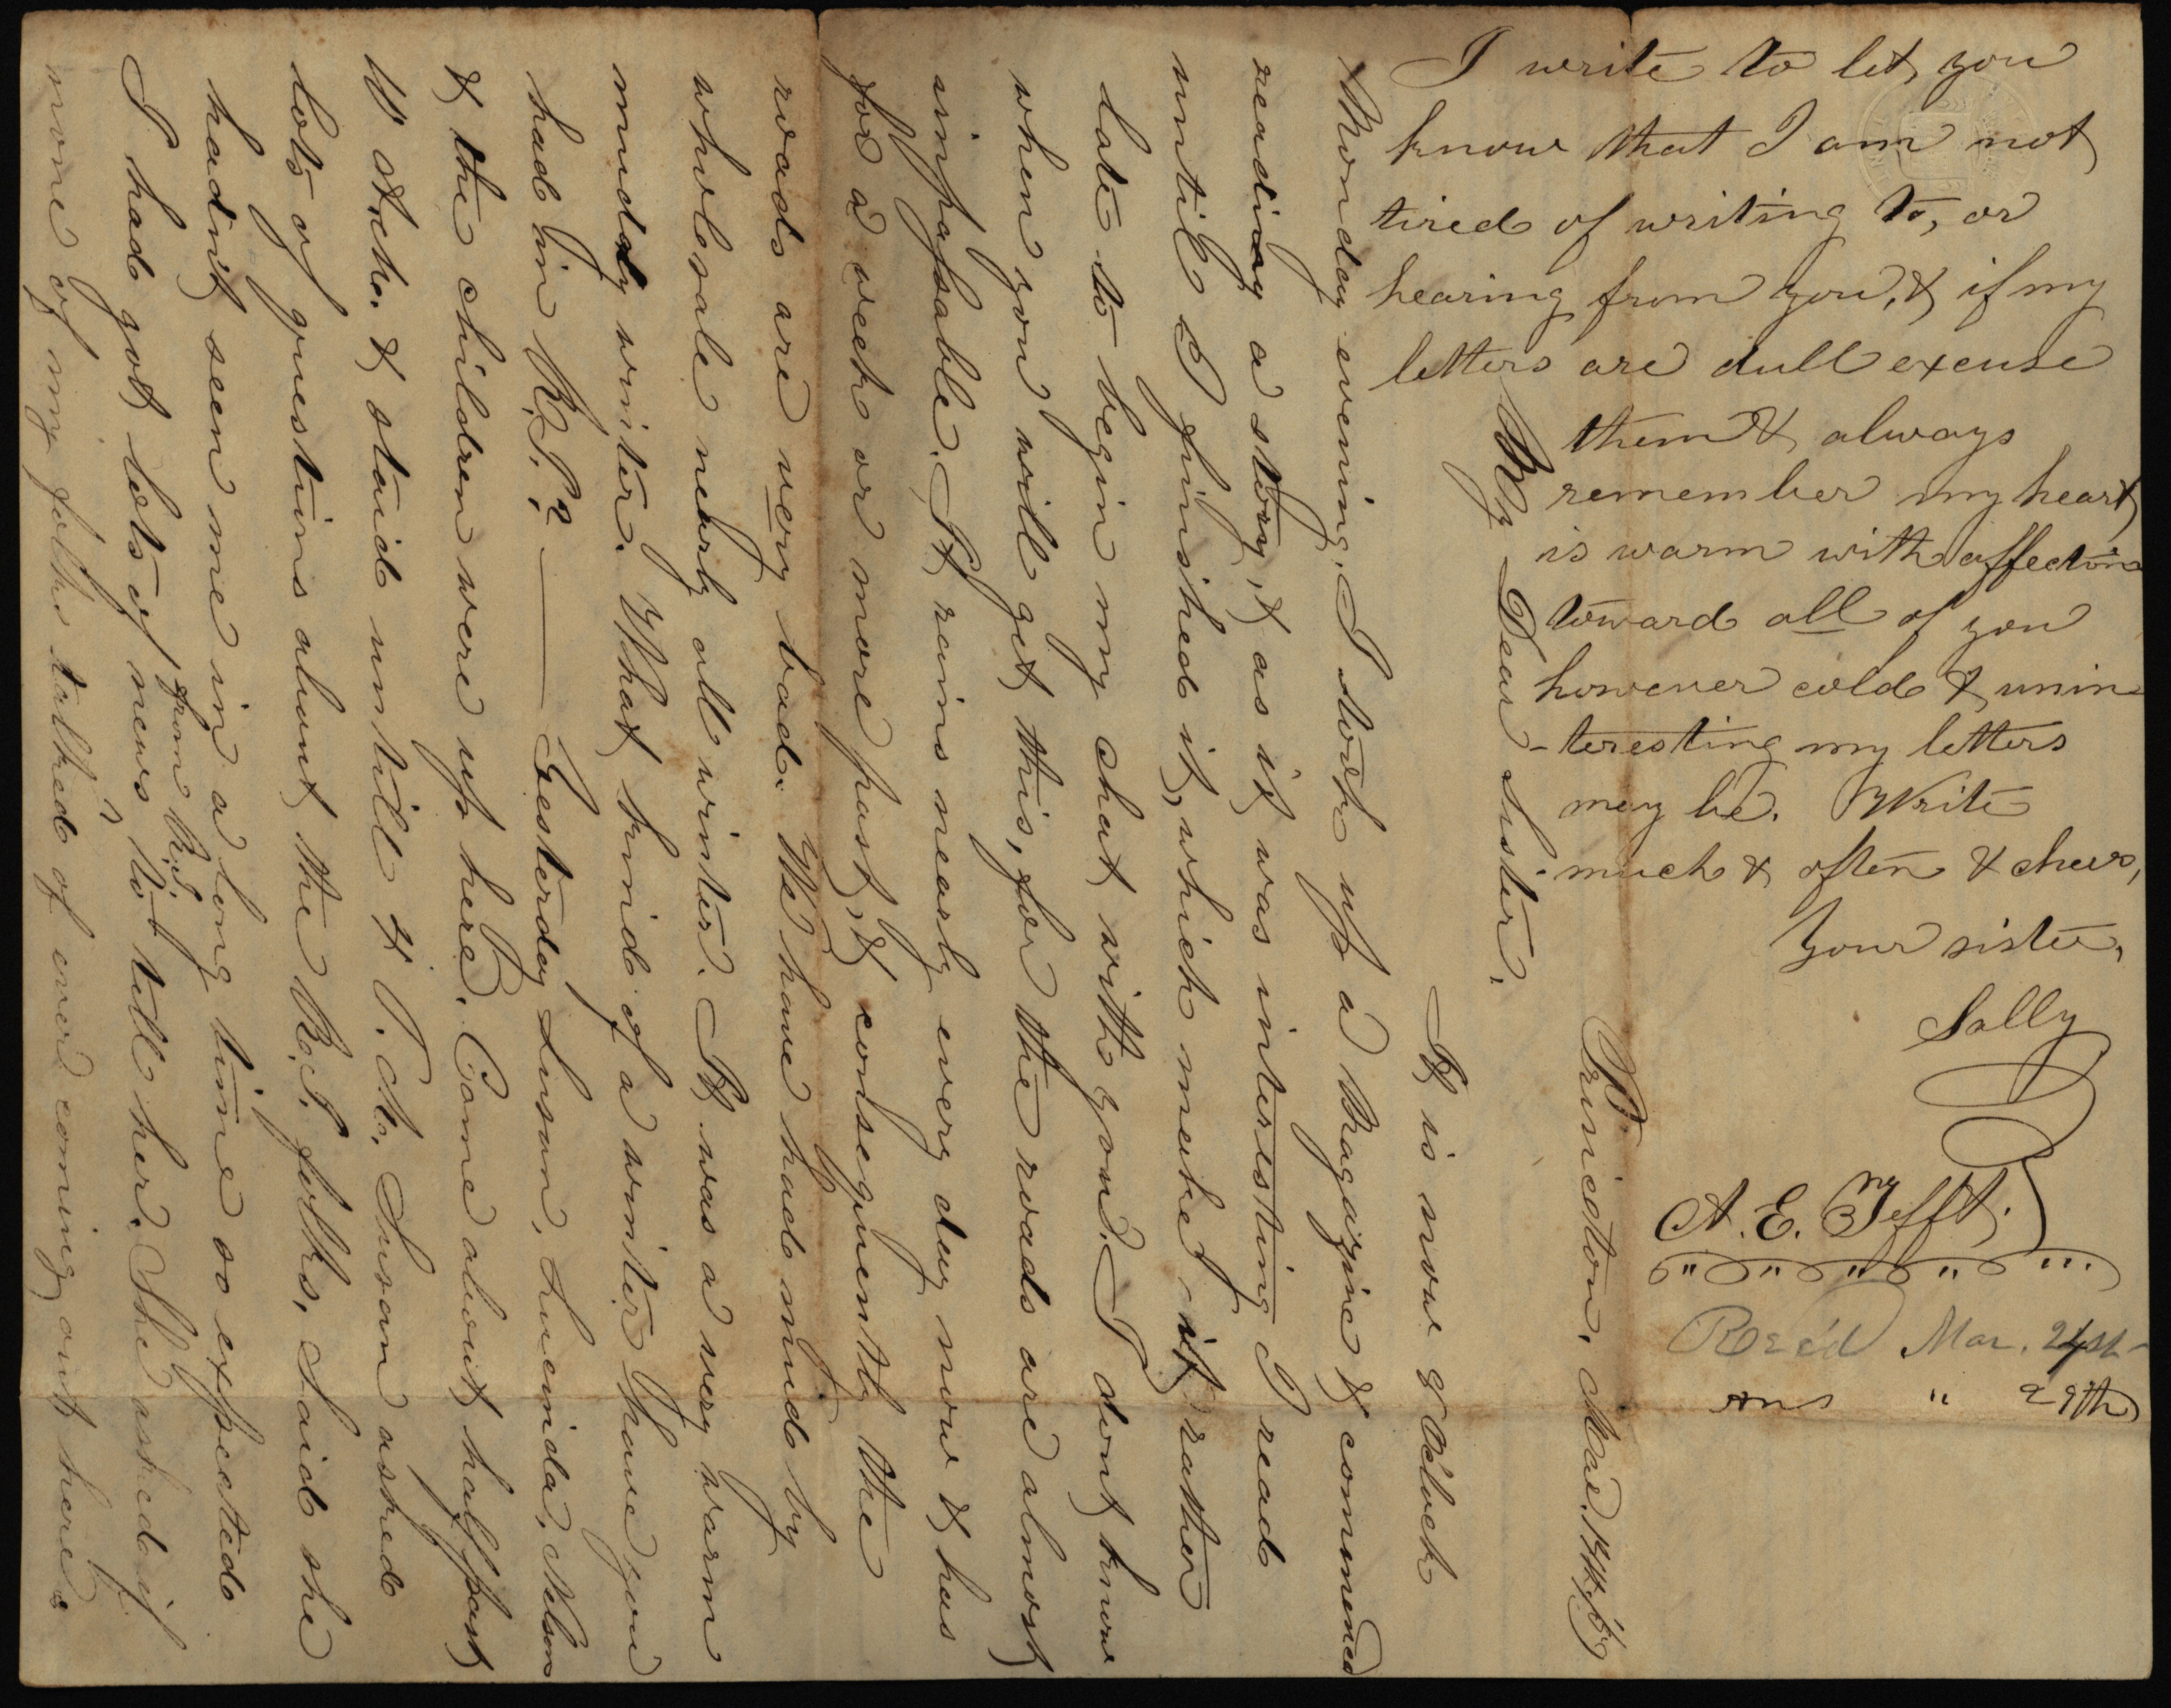 I write to let you
know that I am not
tired of writing to, or
hearing from you, & if my
letters are dull excuse
them & always
remember my heart
is warm with affection
toward all of you
however cold & unin
-teresting my letters
may be. Write
much & often & cheer,
Your sister,
Sally
A. E. Tefft.
Rec'd Mar. 24st
Ans " 29th
Princeton, Mar. 14th,
My Dear Sister,
It is now 9 Oclock
Monday evening. I took up a Magazine & commenced
reading a story, & as it was interesting I read
until I finished it, which makes it rather
late to begin my chat with you. I dont know
when you will get this, for the roads are almost
impassable. It rains nearly every day now & has
for a week or more past, & consequently the
roads are very bad. We have had mud by
wholesale nearly all winter. It was a very warm
muddy winter. What kind of a winter have you
had in R.I.? — Yesterday Susan, Lucinda, Nelson
& the children were up here. Came about half past
10 A.M. & staid untill 4 P.M. Susan asked
lots of questions about the R.I. folks, Said she
hadn't seen me in a long time so expected
from R.I.
I had got lots of news to tell her. She asked if
none of my folks talked of ever coming out here.